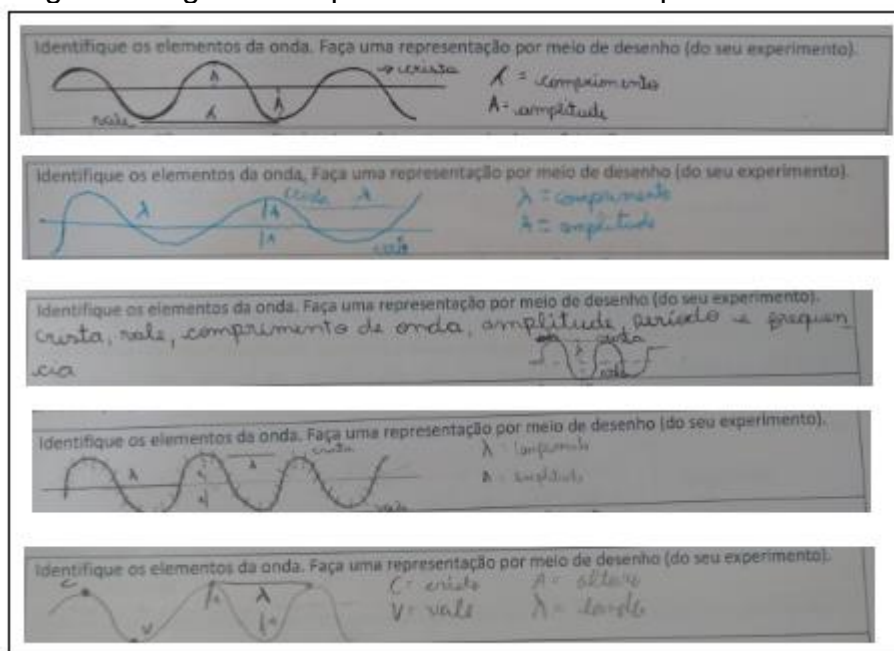 Identifique os elementos da onda. Faça uma representação por meio de desenho (do seu experimento).
crista
λ = comprimento
A
A
A = amplitude
vale
λ
Identifique os elementos da onda, Faça uma representação por meio de desenho (do seu experimento).
crista
λ
λ = comprimento
λ
A
A = amplitude
A
Identifique os elementos da onda. Faça uma representação por meio de desenho (do seu experimento).
crista, vale, comprimento de onda, amplitude, período e frequen
cia
crista
λ
vale
Identifique os elementos da onda. Faça uma representação por meio de desenho (do seu experimento).
crista
λ = comprimento
λ
λ
A = amplitude
vale
Identifique os elementos da onda. Faça uma representação por meio de desenho (do seu experimento).
C
C = crista
A = altura
λ
V = vale
λ =
V